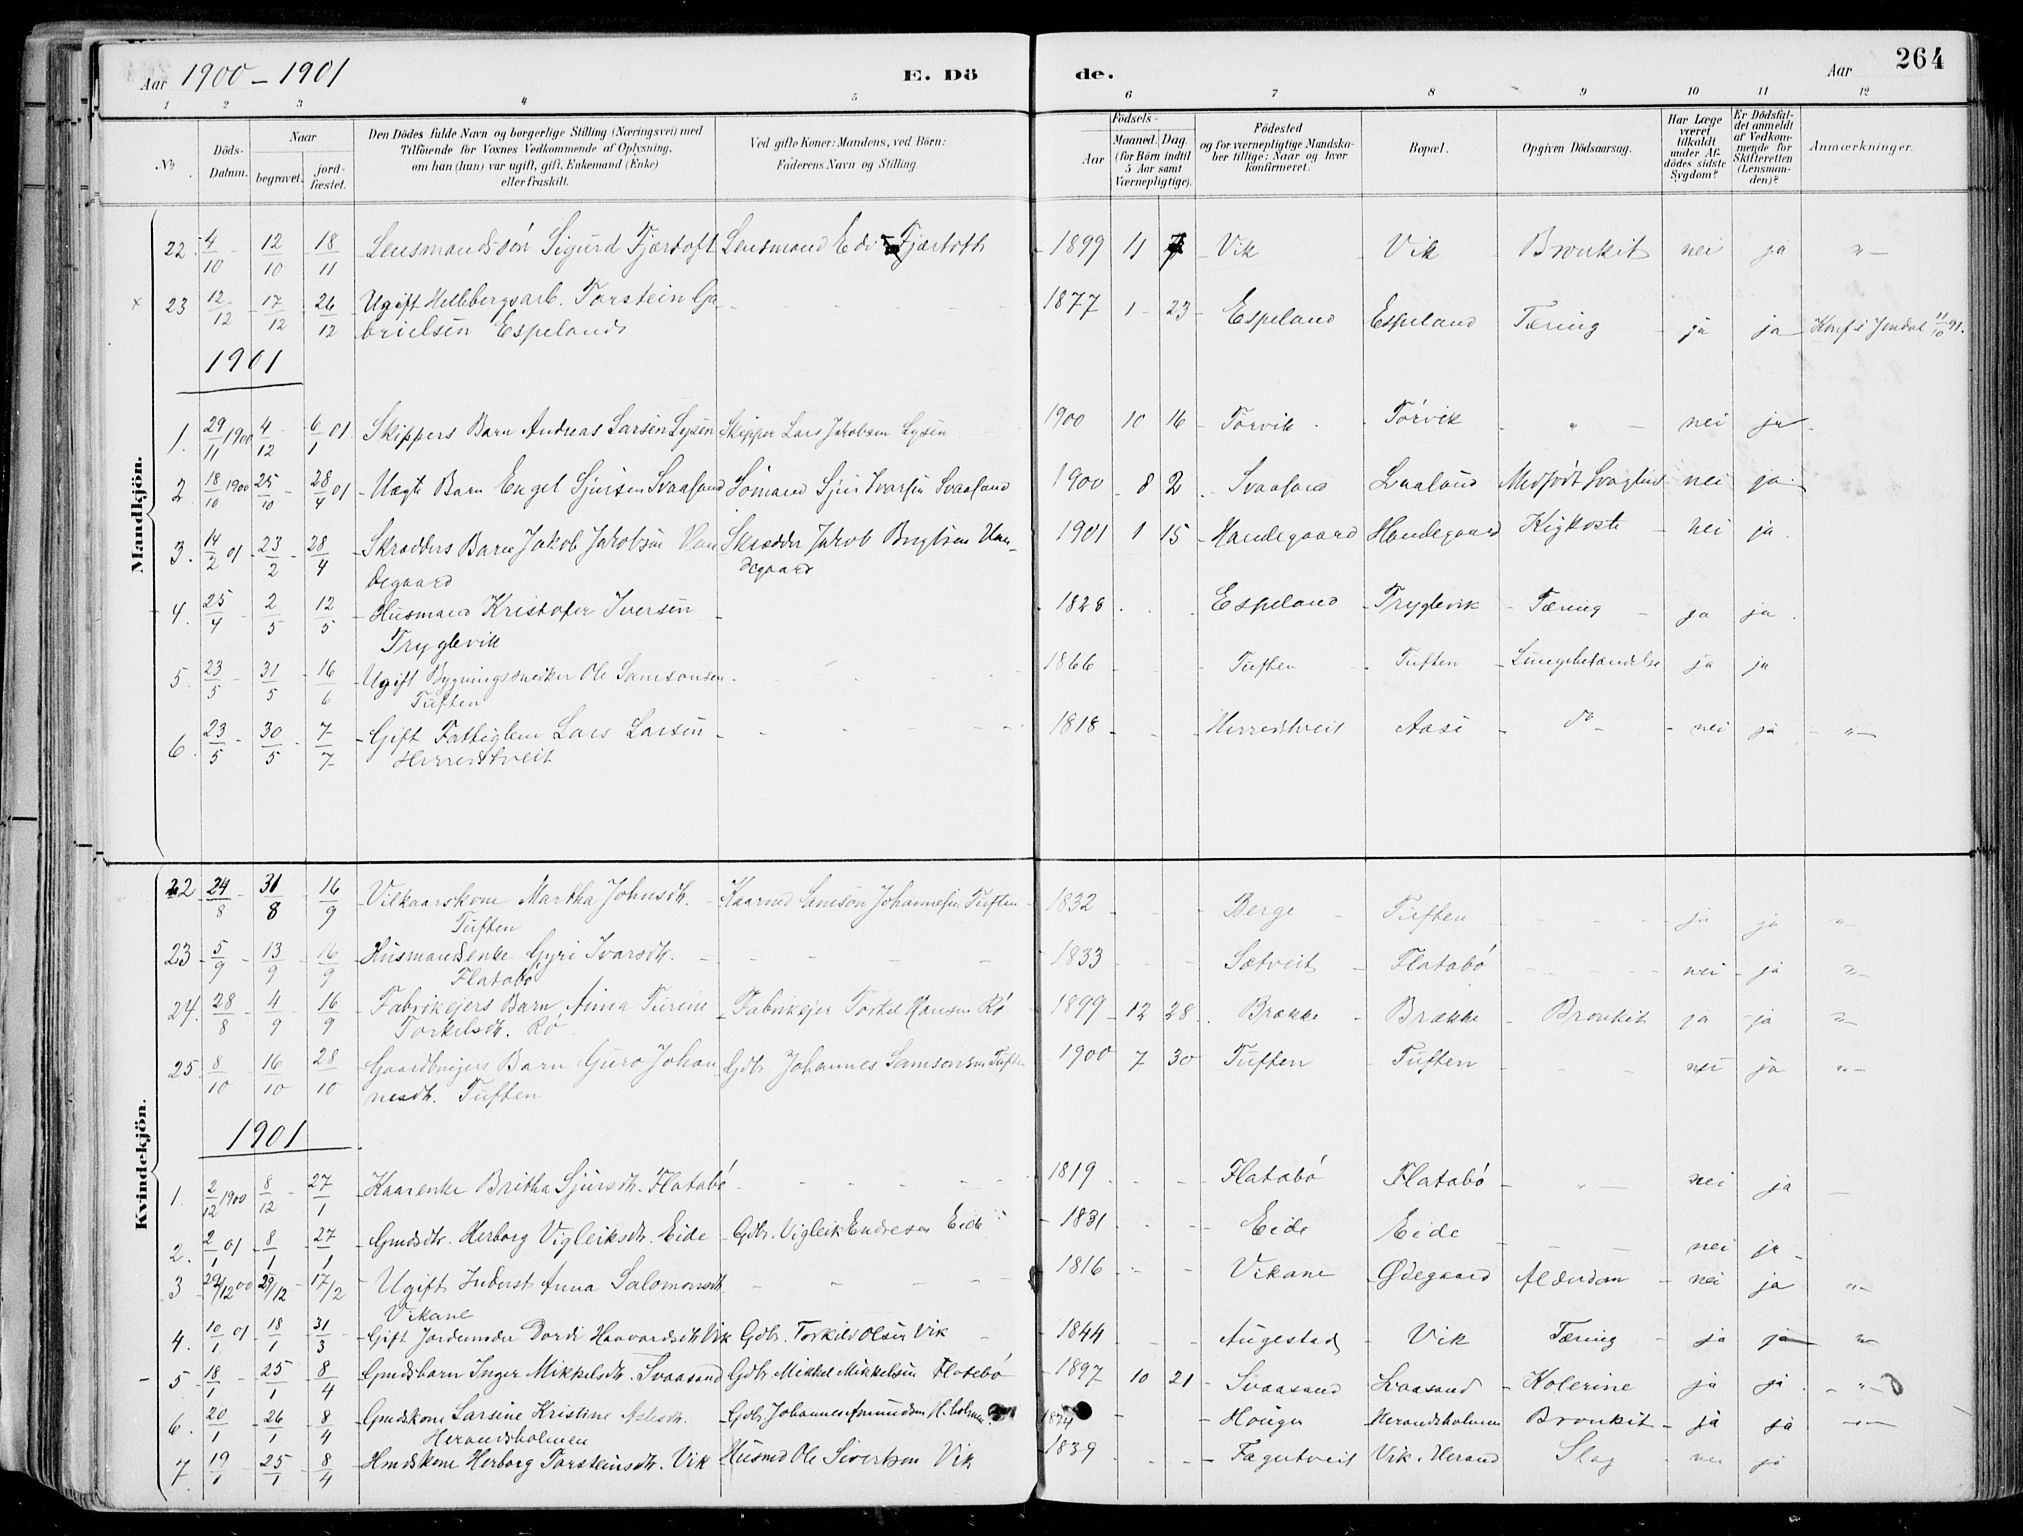 Aar 1900-1901 E. Dö de. Aar 264
1 2 3 4 5 6 7 8 9 10 11 12
No. Döds-Datum. Naar begravet. jordfæstet. Den Dödes fulde Navn og borgerlige Stilling (Næringsvei) med Tilföiende for Voxnes Vedkommende af Oplysning, om han (hun) var ugift, gift, Enkemand (Enke) eller fraskilt. Ved gifte Koner: Mandens, ved Börn: Faderens Navn og Stilling Födsels- Aar Maaned. Dag. (for Börn indtil 5 Aar samt Værnepligtige). Födested og for værnepligtige Mandskaber tillige: Naar og hvor konfirmeret. Bopæl. Opgiven Dödsaarsag. Har Læge været tilkaldt under Afdödes sidste Sygdom? Er Dödsfaldet anmeldt af Vedkommende for Skifteretten (Lensmanden)? Anmærkninger.
Mandkjön.
22. 4/10 12/10 18/11 Lensmandssön Sigurd Fjærtoft Lensmand Edv. Fjærtoft 1899 11 7 Vik Vik Bronkit nei ja "
× 23 12/12 17/12 26/12 Ugift Hellebergsarb. Torstein Ga- 1877 1 23 Espeland Espeland Tæring ja ja Konf i Jondal 11/10 91.
brielsen Espeland
1901
1. 29/11 1900 4/12 6/1 01 Skippers Barn Andreas Larsen Lysen Skipper Lars Jakobsen Lysen 1900 10 16 Torvik Torvik " nei ja
2. 18/10 1900 25/10 28/4 01 Uægte Barn Engel Sjursen Svaasand Sömand Sjur Ivarsen Svaasand 1900 8 2 Svaasand Svaasand Medfödt Svaghed nei ja
3. 14/2 01 23/2 28/4 Skrædders Barn Jakob Jakobsen Han- Skrædder Jakob Han- 1901 1 15 Handegaard Handegaard Kighoste nei ja
degaard degaard
4. 25/4 2/5 12/5 Husmand Kristofer Iversen 1828 Espeland Tryglevik Tæring ja ja
Tryglevik
5. 23/5 31/5 16/6 Ugift Bygningssnedker Ole Samsonsen 1866 Tuften Tuften Lungebetændelse ja ja
Tuften
6. 23/5 30/5 7/7 Gift Fattiglem Lars Larsen 1818 Herrestveit Aase do nei ja "
Herrestveit
Kvindekjön.
22 24/8 31/8 16/9 Vilkaarskone Martha Johnsdtr. Kaarmd Samson Johannesen Tuften 1832 Berge Tuften ja ja "
Tuften
23 5/9 13/9 16/9 Husmandsenke Gyri Ivarsdtr. 1833 Sætveit Flatabö nei ja "
Flatabö
24. 28/8 4/9 16/9 Fabrikejers Barn Anna Turine Fabrikejer Torkel Hansen Rö 1899 12 28 Brække Brække Bronkit ja ja "
Torkelsdtr. Rö
25. 8/10 16/10 28/10 Gaardbrugers Barn Guro Johan Gdbr Johannes Samsonsen Tuften 1900 7 30 Tuften Tuften nei ja "
nesdtr. Tuften
1901
1. 2/12 1900 8/12 27/1 Kaarenke Britha Sjursdtr. Flatabö 1819 Flatabö Flatabö " nei ja
2. 2/1 01 8/1 27/1 Gmdsdtr. Herborg Vigleiksdtr. Eide Gdbr. Vigleik Endresen Eide 1831 Eide Eide nei ja
3 22/12 00 29/12 17/2 Ugift Inderst Anna Salomonsdtr. 1816 Vikane Ödegaard Alderdom nei ja "
Vikane
4. 10/1 01 18/1 31/3 Gift Jordemoder Dordi Haavardsdtr Vik Gdbr. Torkild Olsen Vik 1844 Augestad Vik Tæring ja ja "
5 18/1 25/1 8/4 Gmdsbarn Inger Mikkelsdtr. Svaasand Gdbr Mikkel Mikkelsen Flatebö 1897 10 21 Svaasand Svaasand Kolerine ja ja "
6. 20/1 26/1 8/4 Gmdskone Larsine Kristine Gdbr Johannes Amundsen H.holmen 1874 Houge Herandsholmen Bronkit ja ja "
Herandsholmen
7. 19/1 25/1 8/4 Hmdskone Herborg Torsteinsdtr. Vik Husmd Ole Sivertsen Vik 1839 Fagertveit Vik. Herand Slag nei ja